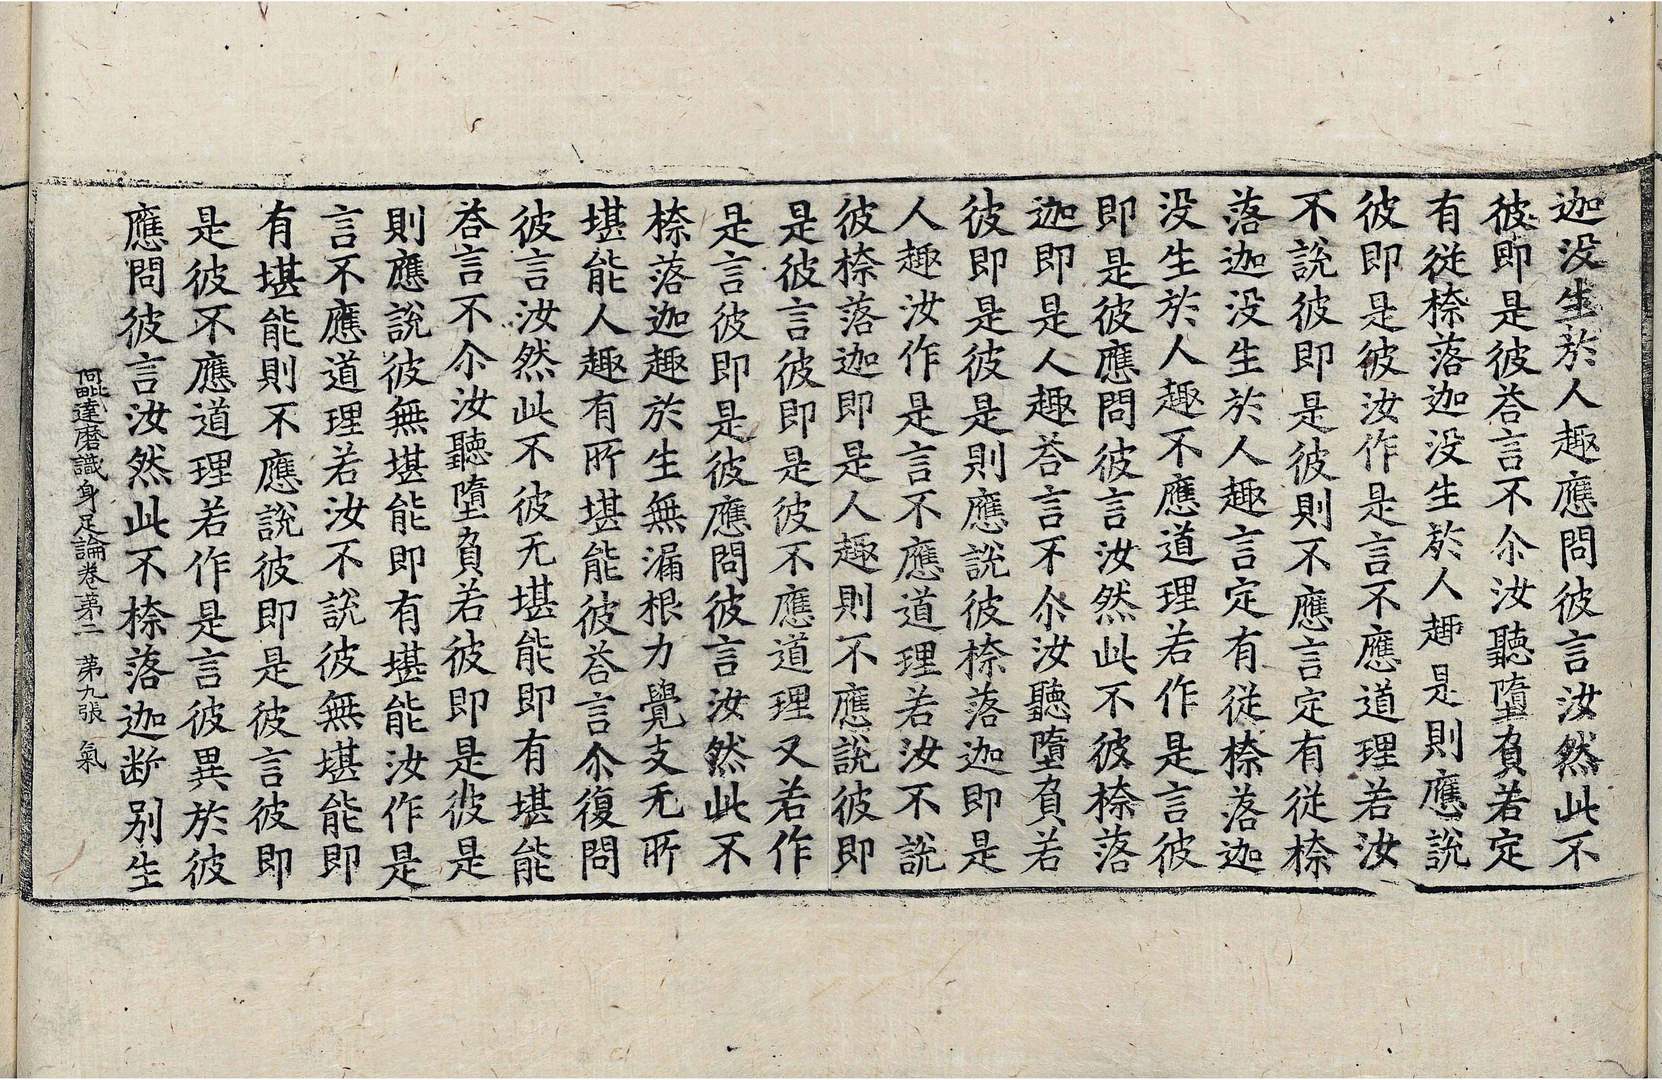 迦没生於人趣應問彼言汝然此不
彼即是彼荅言不尒汝聽墮負若定
有從㮈落迦没生於人趣是則應說
彼即是彼汝作是言不應道理若汝
不說彼即是彼則不應言定有從㮈
落迦没生於人趣言定有從㮈落迦
没生於人趣不應道理若作是言彼
即是彼應問彼言汝然此不彼㮈落
迦即是人趣荅言不尒汝聽墮負若
彼即是彼是則應說彼㮈落迦即是
人趣汝作是言不應道理若汝不說
彼㮈落迦即是人趣則不應說彼即
是彼言彼即是彼不應道理又若作
是言彼即是彼應問彼言汝然此不
㮈落迦趣於生無漏根力覺支无所
堪能人趣有所堪能彼荅言尒復問
彼言汝然此不彼无堪能即有堪能
荅言不尒汝聽墮負若彼即是彼是
則應說彼無堪能即有堪能汝作是
言不應道理若汝不說彼無堪能即
有堪能則不應說彼即是彼言彼即
是彼不應道理若作是言彼異於彼
應問彼言汝然此不㮈落迦断别生
阿毗達磨識身足論卷第二 第九張 氣